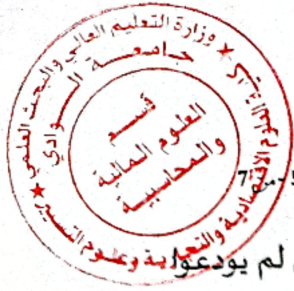 وزارة التعليم العالي والبحث العلمي
جامعة الوادي
كلية العلوم الاقتصادية والتجارية وعلوم التسيير
قسم
العلوم المالية
والمحاسبية
لم يودعوا